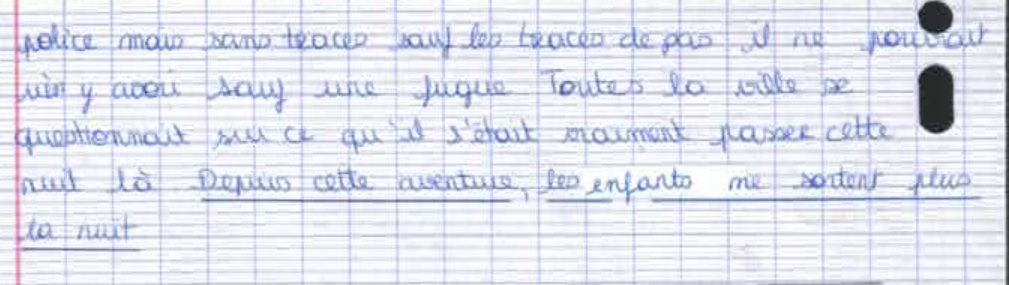 police mais sans traces sauf les traces de pas il ne pouvrait
rien y avoir sauf une fugue Toutes la ville se
questionnait sur ce qu'il s'était vraiment passer cette
nuit là Depuis cette aventure, les enfants ne sortent plus
la nuit